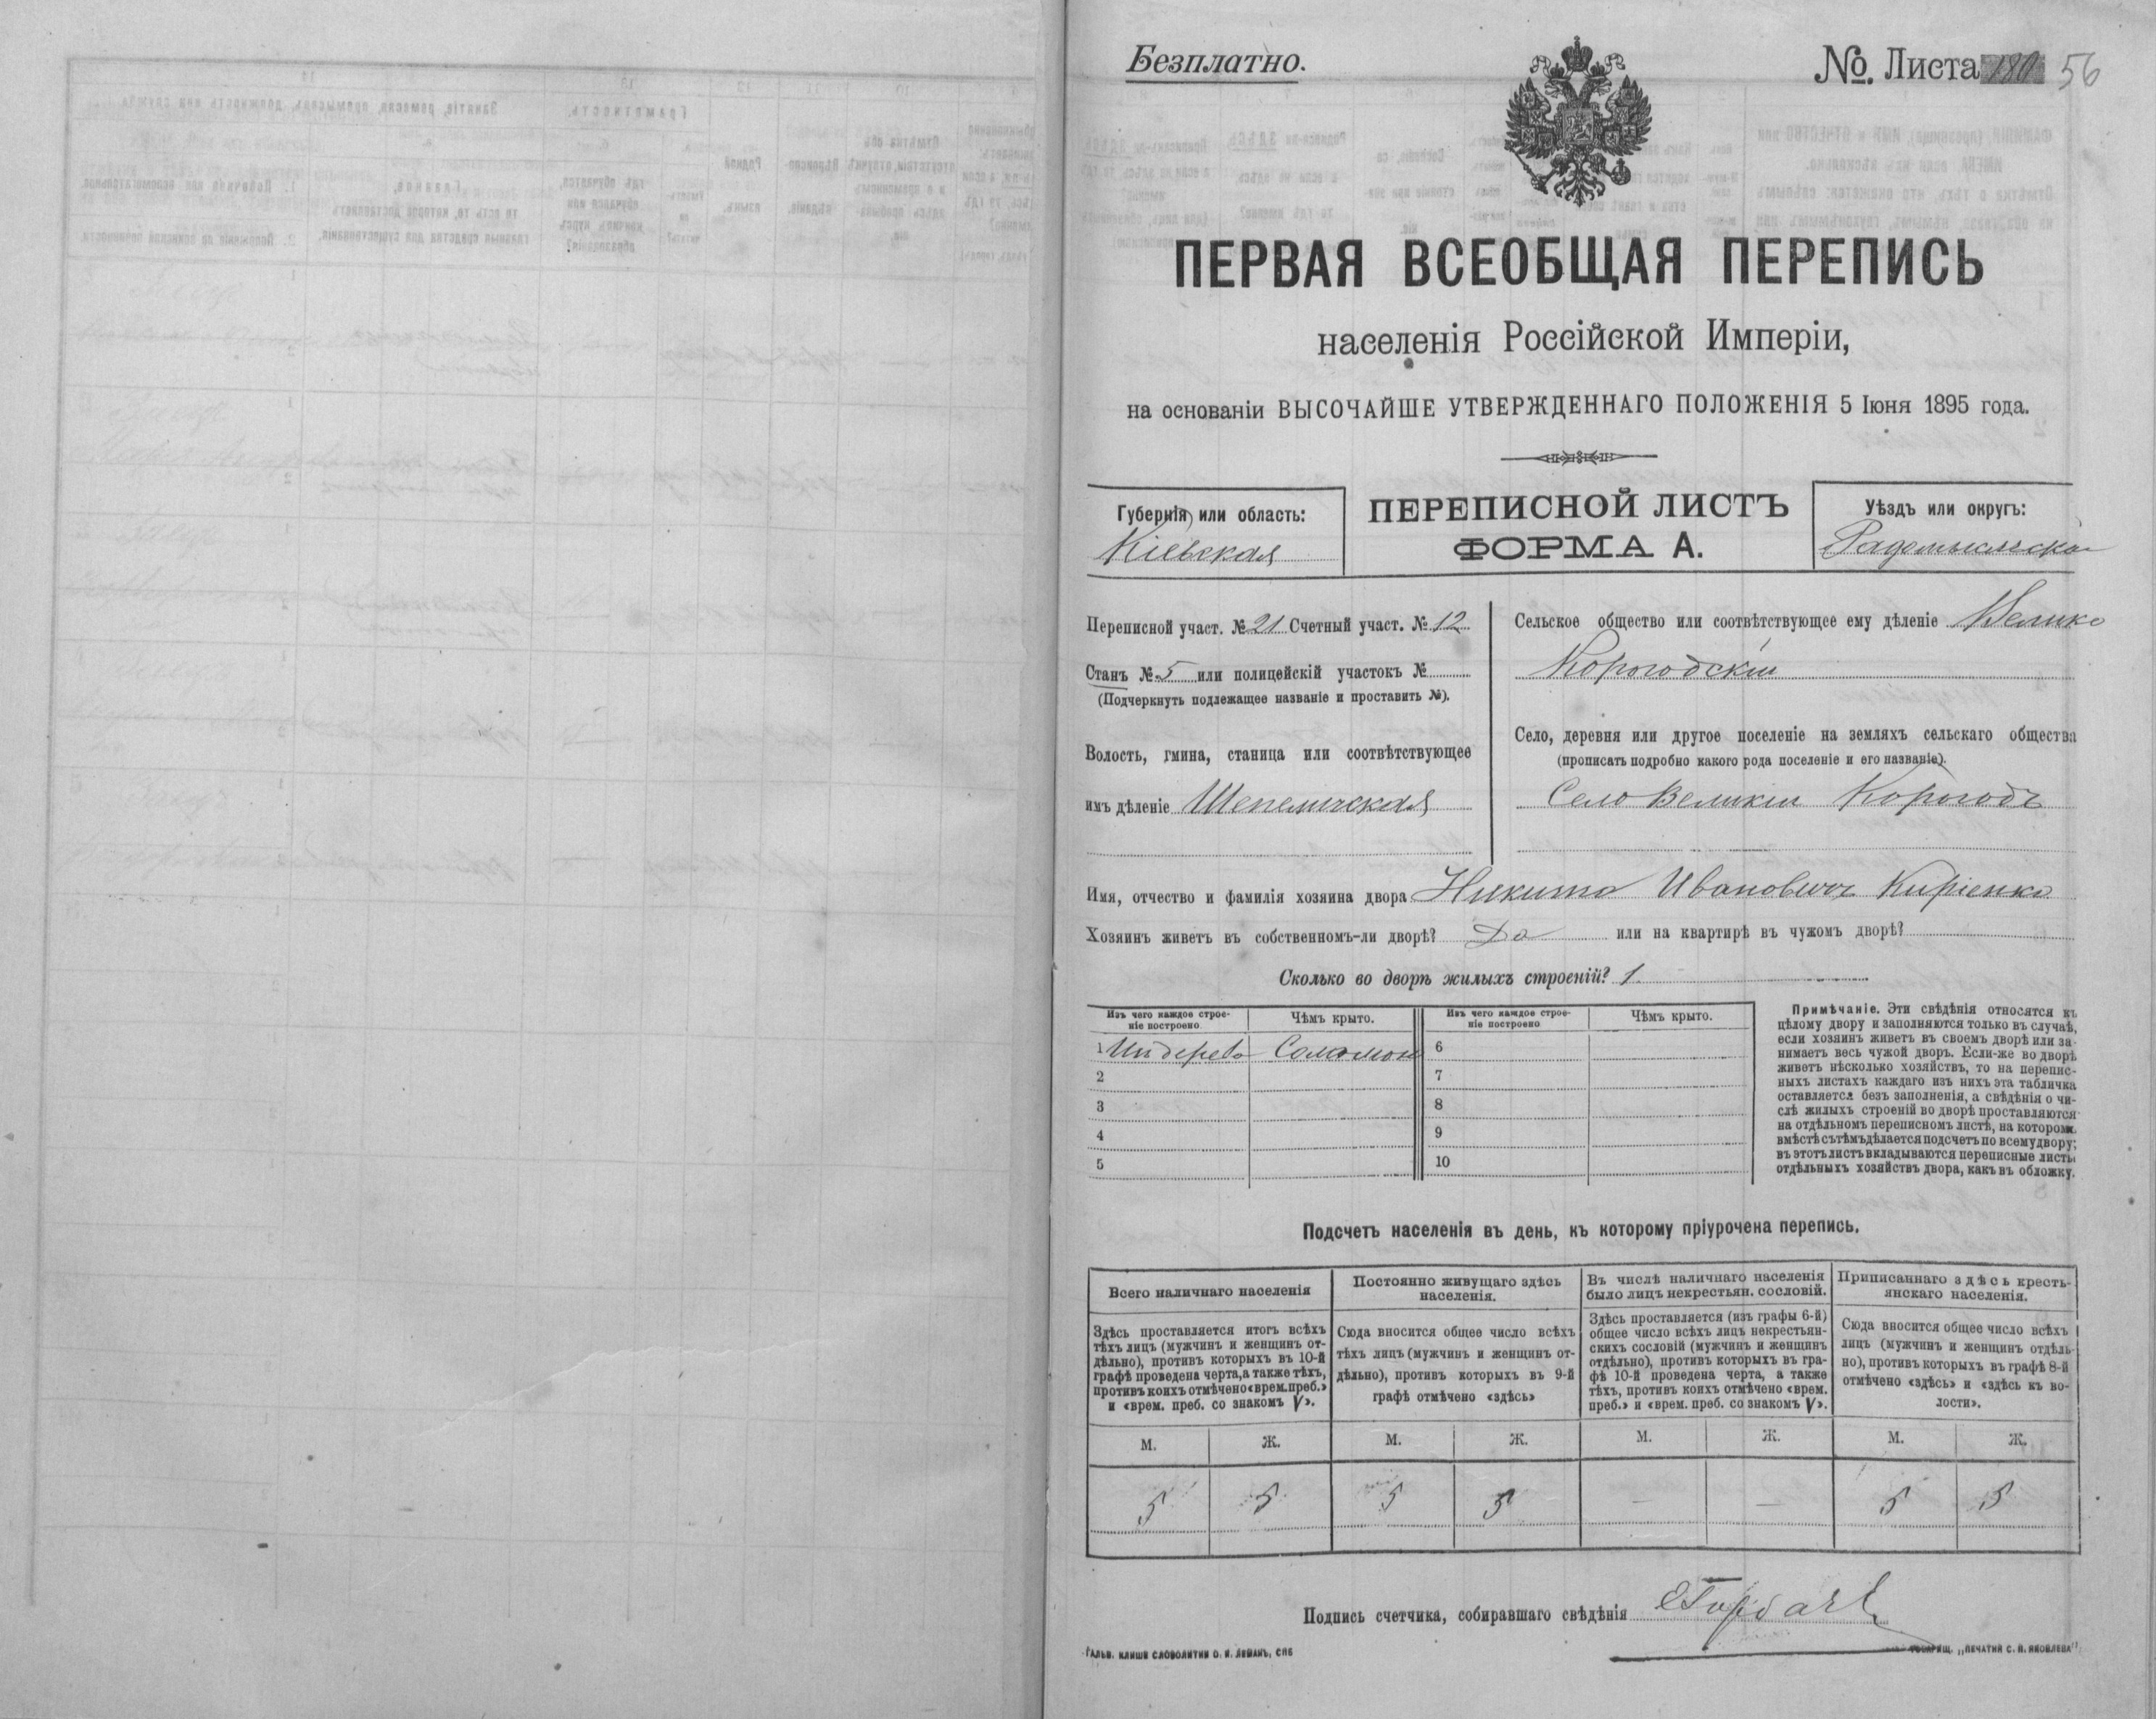 Безплатно.
№. Листа 180 56
ПЕРВАЯ ВСЕОБЩАЯ ПЕРЕПИСЬ
населенія Россійской Имперіи,
на основаніи ВЫСОЧАЙШЕ УТВЕРЖДЕННАГО ПОЛОЖЕНІЯ 5 Іюня 1895 года.
Губернія или область:
Кіевская
ПЕРЕПИСНОЙ ЛИСТЪ
ФОРМА А.
Уѣздъ или округъ:
Радомысльскій
Переписной участ. № 21 Счетный участ. № 12
Станъ № 5 или полицейскій участокъ №
(Подчеркнуть подлежащее названіе и проставить №).
Волость, гмина, станица или соотвѣтствующее
имъ дѣленіе Шепеличская
Сельское общество или соотвѣтствующее ему дѣленіе Велико
Корогодскій
Село, деревня или другое поселеніе на земляхъ сельскаго общества
(прописать подробно какого рода поселеніе и его названіе).
Село Великій Корогодъ
Имя, отчество и фамилія хозяина двора Никита Ивановичъ Киріенко
Хозяинъ живетъ въ собственномъ-ли дворѣ? Да или на квартирѣ въ чужомъ дворѣ?
Сколько во дворѣ жилыхъ строеній? 1.
Изъ чего каждое строе-
ніе построено
Чѣмъ крыто.
Изъ чего каждое строе-
ніе построено
Чѣмъ крыто.
1 Изъ дерева Соломою 6
2 7
3 8
4 9
5 10
Примѣчаніе. Эти свѣдѣнія относятся къ
цѣлому двору и заполняются только въ случаѣ,
если хозяинъ живетъ въ своемъ дворѣ или за-
нимаетъ весь чужой дворъ. Если-же во дворѣ
живетъ нѣсколько хозяйствъ, то на перепис-
ныхъ листахъ каждаго изъ нихъ эта табличка
оставляется безъ заполненія, а свѣдѣнія о чи-
слѣ жилыхъ строеній во дворѣ проставляются
на отдѣльномъ переписномъ листѣ, на которомъ
вмѣстѣ съ тѣмъ дѣлается подсчетъ по всему двору;
въ этотъ листъ вкладываются переписные листы
отдѣльныхъ хозяйствъ двора, какъ въ обложку.
Подсчетъ населенія въ день, къ которому пріурочена перепись.
Всего наличнаго населенія
Постоянно живущаго здѣсь
населенія.
Въ числѣ наличнаго населенія
было лицъ некрестьян. сословій.
Приписаннаго здѣсь кресть-
янскаго населенія.
Здѣсь проставляется итогъ всѣхъ
тѣхъ лицъ (мужчинъ и женщинъ от-
дѣльно), противъ которыхъ въ 10-й
графѣ проведена черта, а также тѣхъ,
противъ коихъ отмѣчено «врем. преб.»
и «врем. преб. со знакомъ V».
Сюда вносится общее число всѣхъ
тѣхъ лицъ (мужчинъ и женщинъ от-
дѣльно), противъ которыхъ въ 9-й
графѣ отмѣчено «здѣсь»
Здѣсь проставляется (изъ графы 6-й)
общее число всѣхъ лицъ некрестьян-
скихъ сословій (мужчинъ и женщинъ
отдѣльно), противъ которыхъ въ гра-
фѣ 10-й проведена черта, а также
тѣхъ, противъ коихъ отмѣчено «врем.
преб.» и «врем. преб. со знакомъ V».
Сюда вносится общее число всѣхъ
лицъ (мужчинъ и женщинъ отдѣль-
но), противъ которыхъ въ графѣ 8-й
отмѣчено «здѣсь» и «здѣсь къ во-
лости».
М. Ж. М. Ж. М. Ж. М. Ж.
5 5 5 5 — — 5 5
Подпись счетчика, собиравшаго свѣдѣнія
ГАЛЬВ. КЛИШЕ СЛОВОЛИТНИ О. И. ЛЕМАНЪ, СПБ
ТОВАРИЩ. „ПЕЧАТНЯ С. П. ЯКОВЛЕВА"